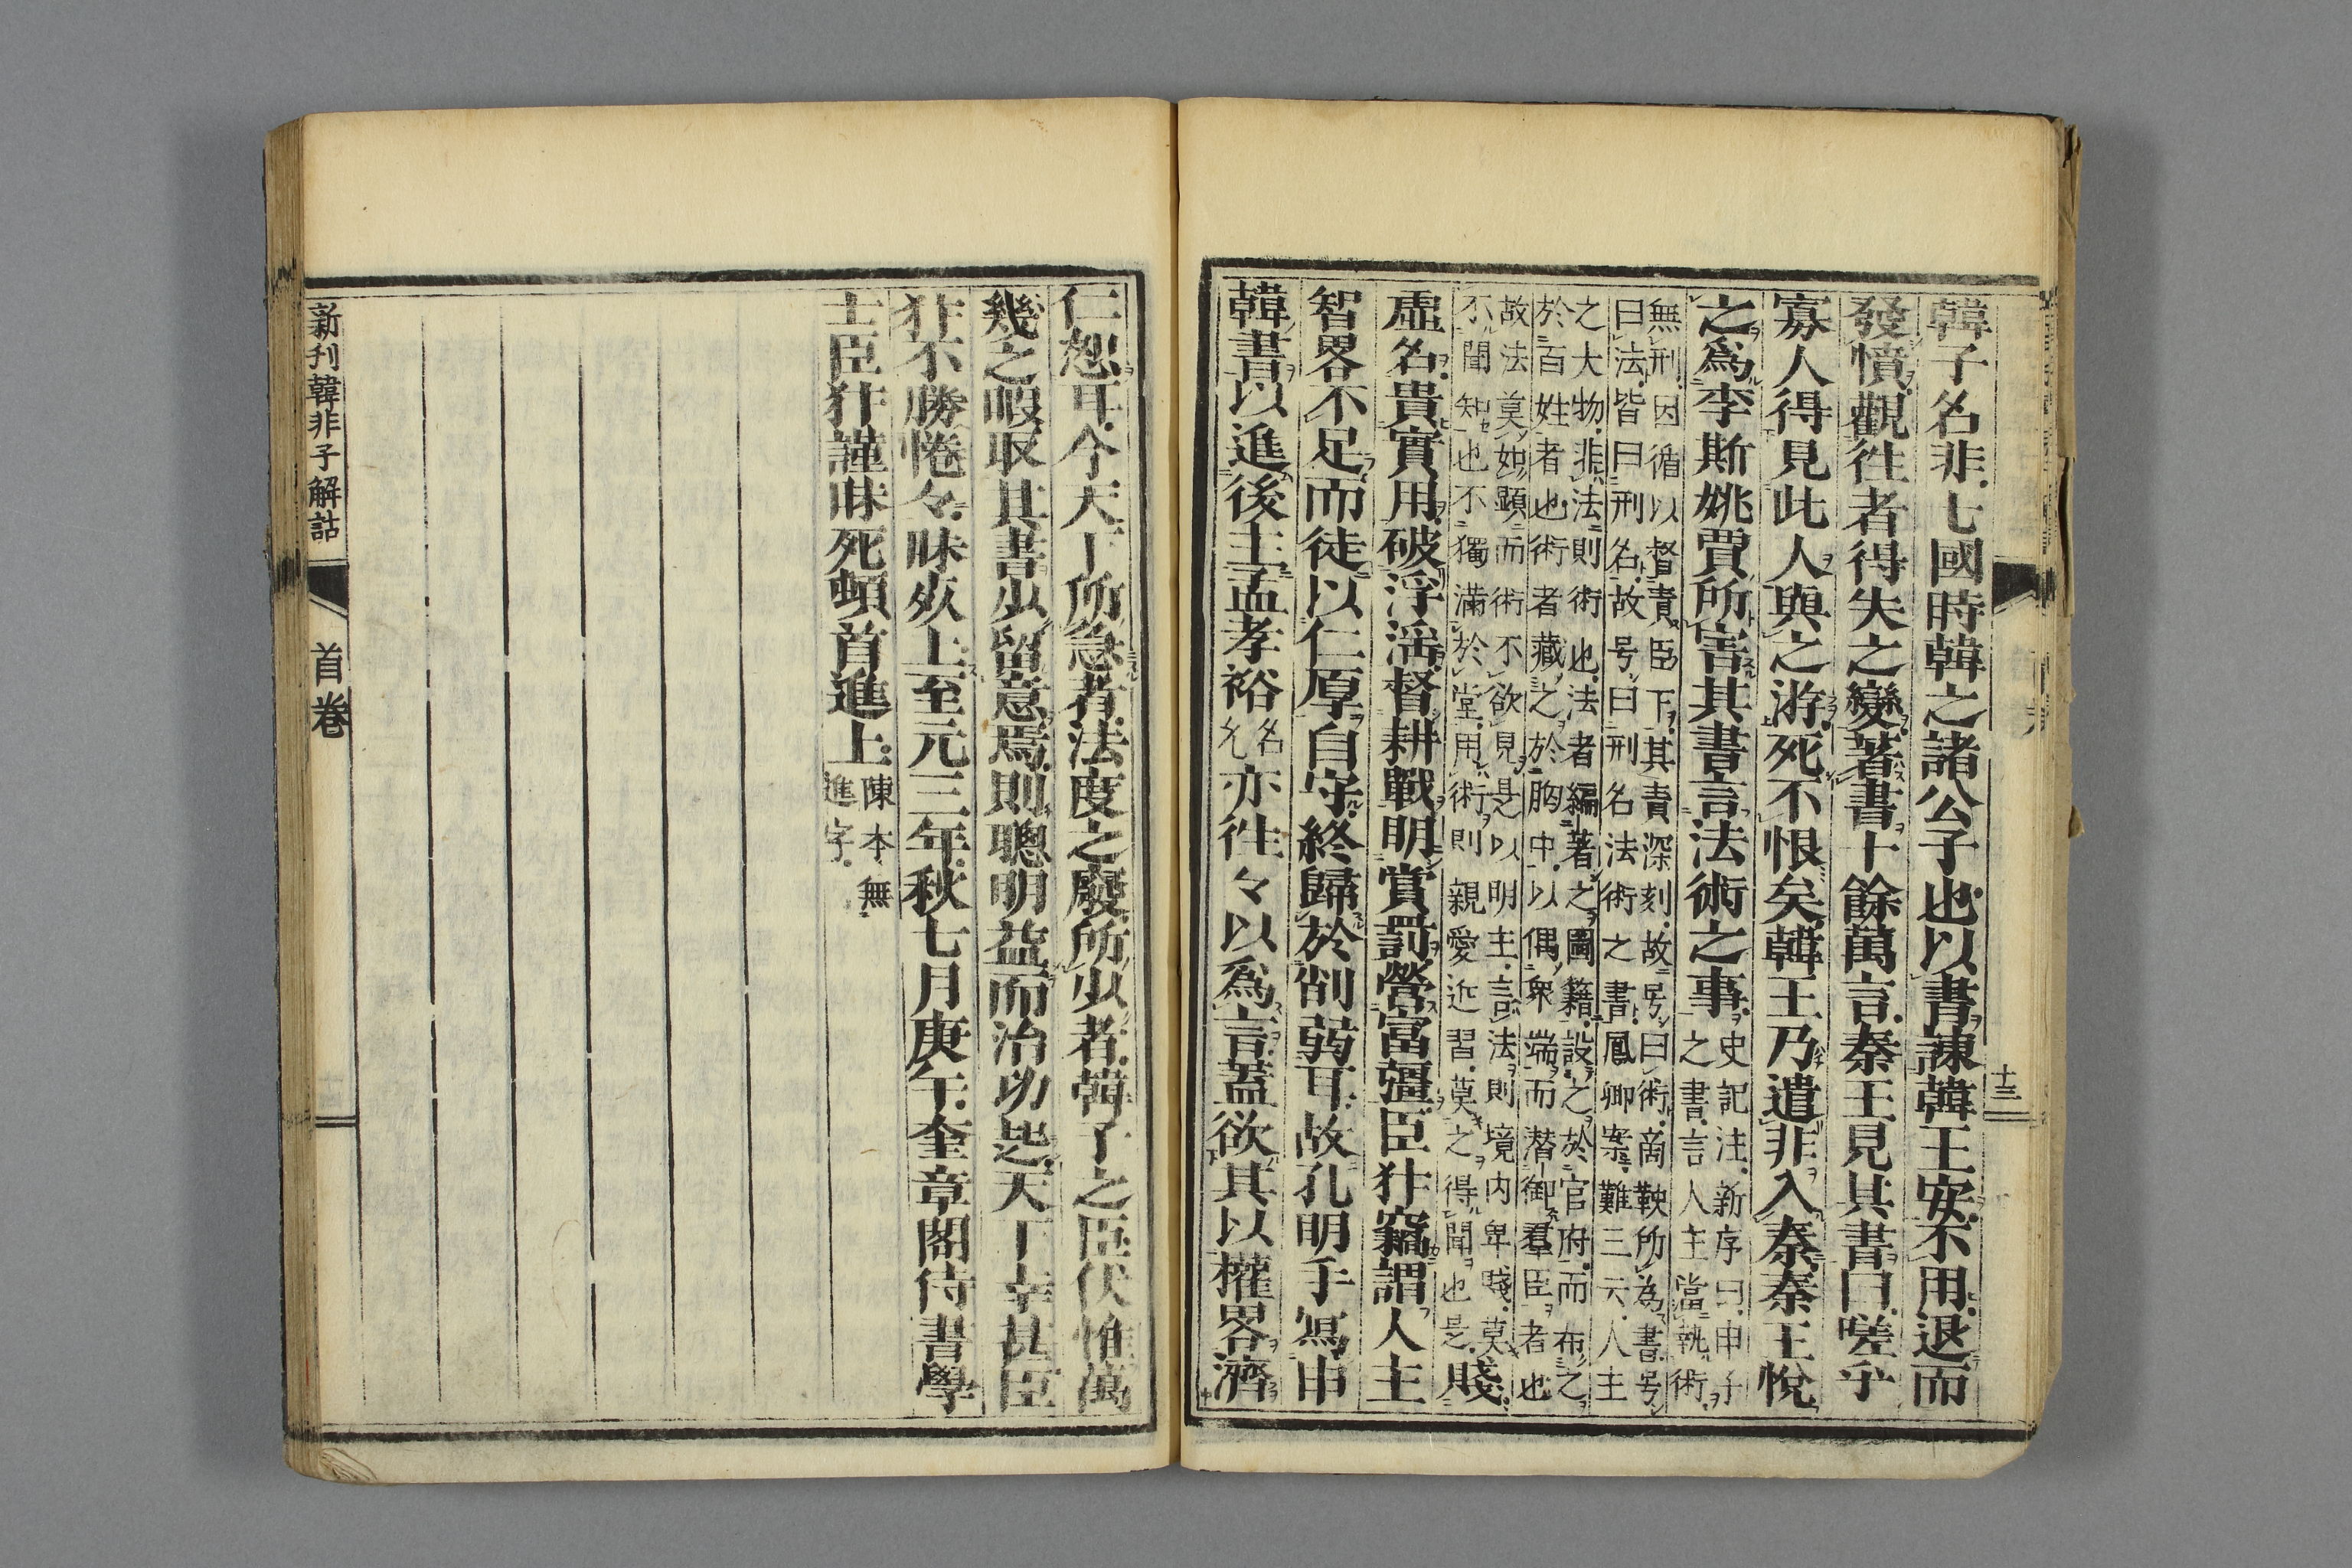 韓子名非七國時韓之諸公子也以書諫韓王安不用退而
發憤觀徃者得失之變著書十餘萬言秦王見其書曰嗟乎
寡人得見此人與之游死不恨矣韓王乃遣非入秦秦王悅
之爲李斯姚賈所害其書言法術之事
史記注新序曰申子
之書言人主當執術
無刑因循以督責臣下其責深刻故号曰術商鞅所為書号
曰法皆曰刑名故号曰刑名法術之書鳳卿案難三云人主
之大物非法則術也法者編著之圖籍設之於官府而布之
於百姓者也術者藏之於胸中以偶衆端而潜御羣臣者也
故法莫如顯而術不欲見是以明主言法則境内卑賤莫
不聞知也不獨滿於堂用術則親愛近習莫之得聞也是
賤
虛名貴實用破浮淫督耕戰明賞罰營富彊臣犿竊謂人主
智畧不足而徒以仁厚自守終歸於削弱耳故孔明手寫申
韓書以進後主孟孝裕名光亦徃々以爲言蓋欲其以權畧濟
十三
仁恕耳今天下所急者法度之廢所少者韓子之臣伏惟萬
幾之暇取其書少留意焉則聰明益而治功起天下幸甚臣
犿不勝惓々昧死上至元三年秋七月庚午奎章閣侍書學
士臣犿謹昧死頓首進上
陳本無
進字
新刋韓非子解詁
首卷